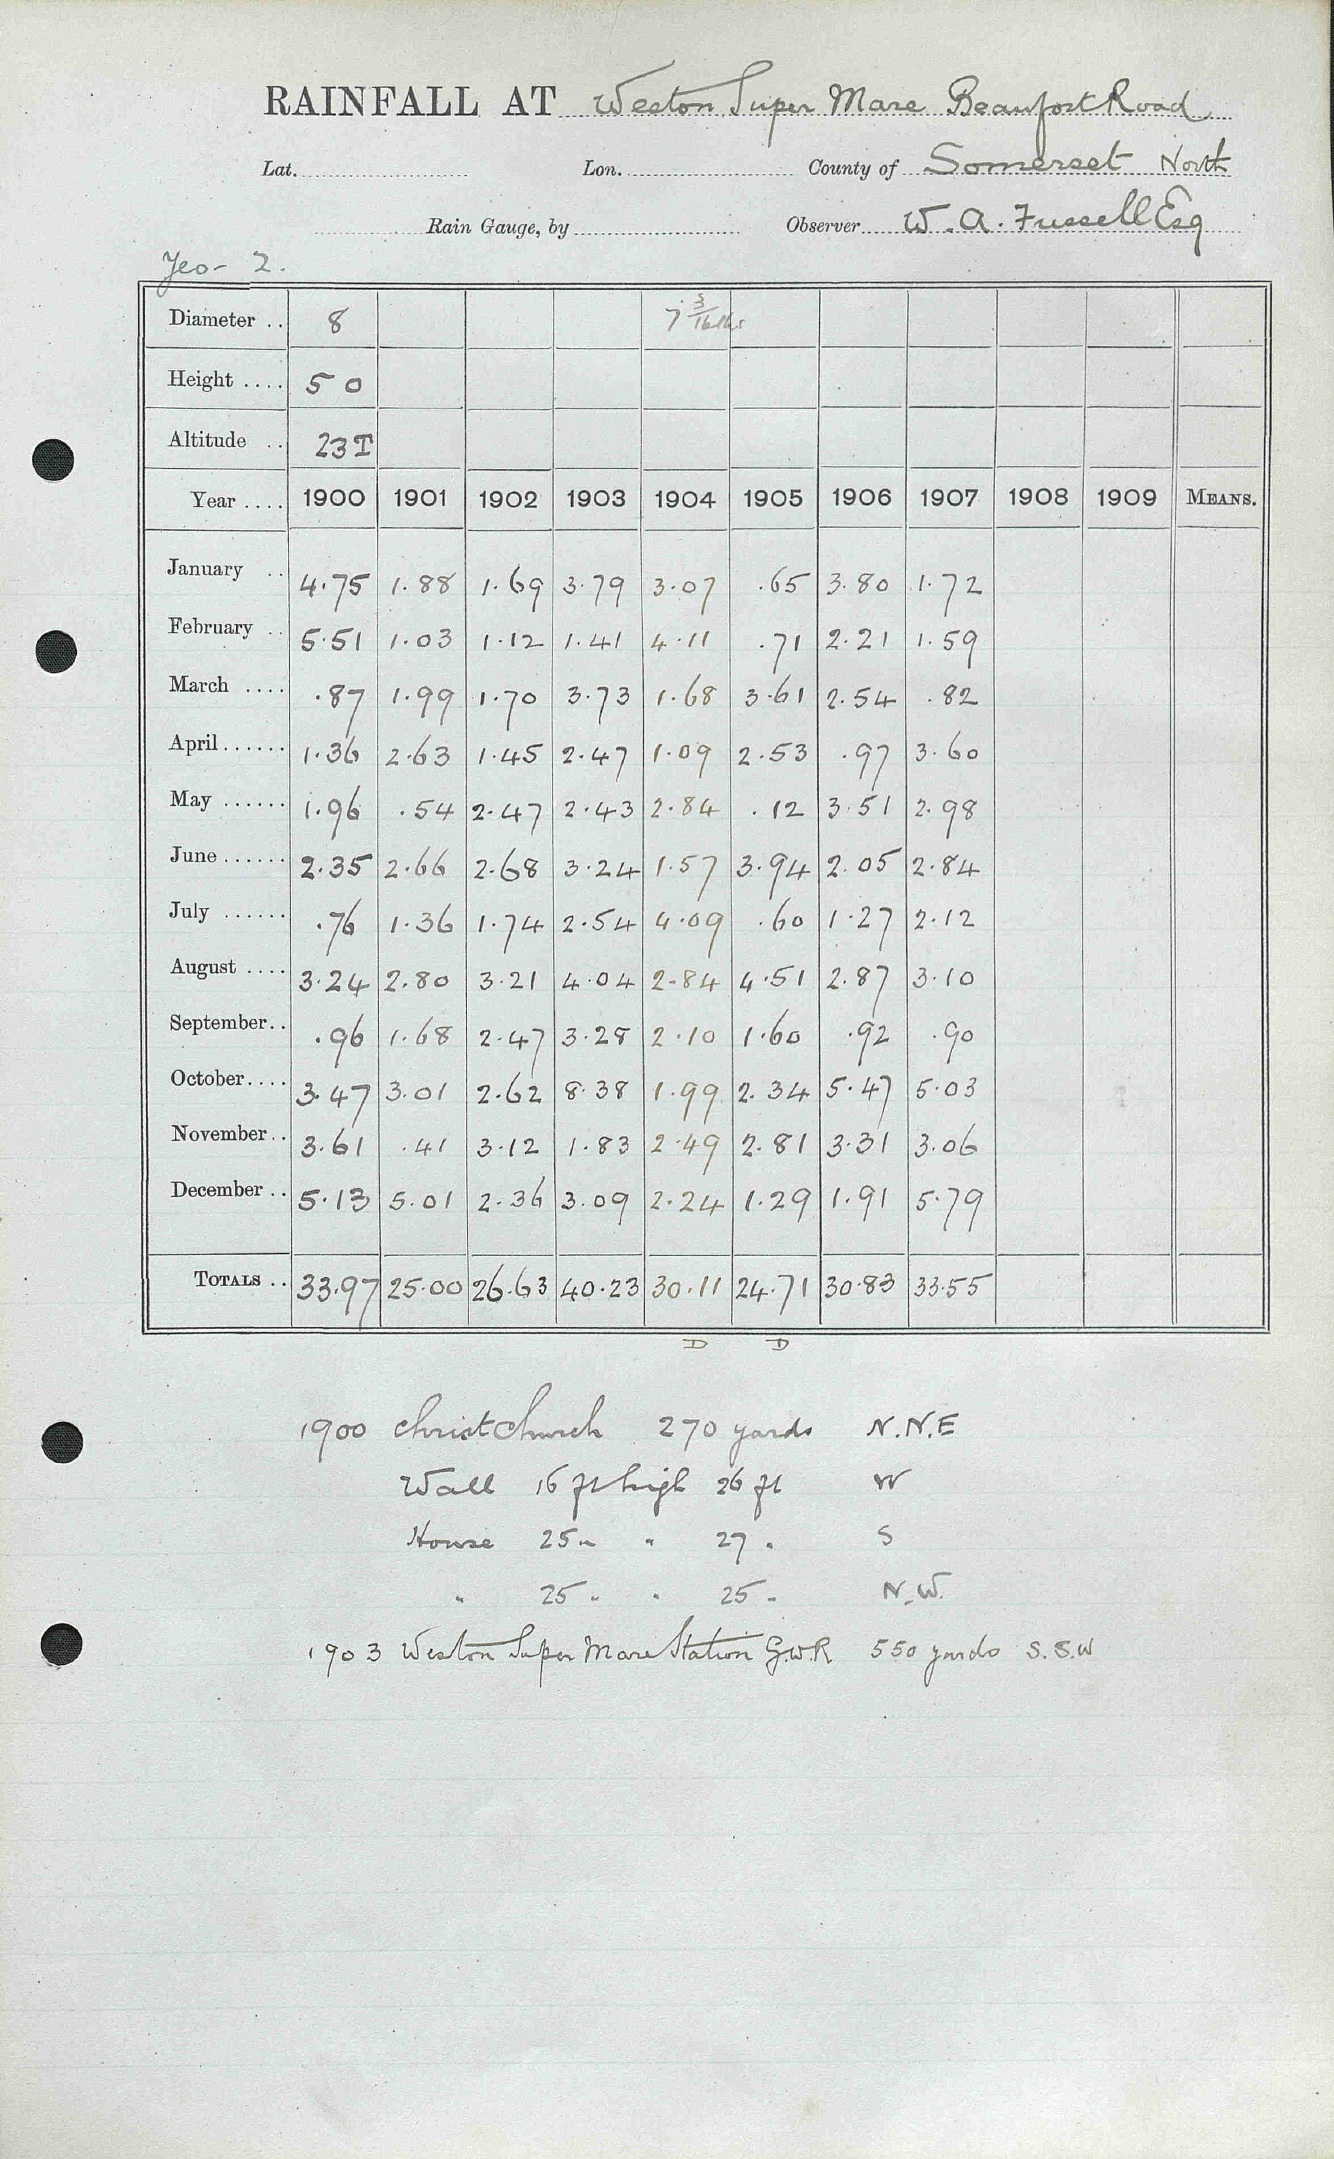 RAINFALL AT Weston Super Mare Beaufort Road
Lat. Lon. County of Somerset North
Rain Gauge, by Observer W. A. Fussell Esq
Yeo- 2.
Diameter .. 8 7 3/16ths
Height .... 5 0
Altitude .. 23T
Year .... 1900 1901 1902 1903 1904 1905 1906 1907 1908 1909 MEANS.
January .. 4.75 1.88 1.69 3.79 3.07 .65 3.80 1.72
February .. 5.51 1.03 1.12 1.41 4.11 .71 2.21 1.59
March .... .87 1.99 1.70 3.73 1.68 3.61 2.54 .82
April...... 1.36 2.63 1.45 2.47 1.09 2.53 .97 3.60
May ...... 1.96 .54 2.47 2.43 2.84 .12 3.51 2.98
June ...... 2.35 2.66 2.68 3.24 1.57 3.94 2.05 2.84
July ...... .76 1.36 1.74 2.54 4.09 .60 1.27 2.12
August .... 3.24 2.80 3.21 4.04 2.84 4.51 2.87 3.10
September.. .96 1.68 2.47 3.28 2.10 1.60 .92 .90
October.... 3.47 3.01 2.62 8.38 1.99 2.34 5.47 5.03
November.. 3.61 .41 3.12 1.83 2.49 2.81 3.31 3.06
December .. 5.13 5.01 2.36 3.09 2.24 1.29 1.91 5.79
TOTALS .. 33.97 25.00 26.63 40.23 30.11 24.71 30.83 33.55
D D
1900 Christ Church 270 yards N.N.E
Wall 16 ft high 26 ft W
House 25 " " 27 " S
" 25 " " 25 " N.W.
1903 Weston Super Mare Station G.W.R 550 yards S.S.W